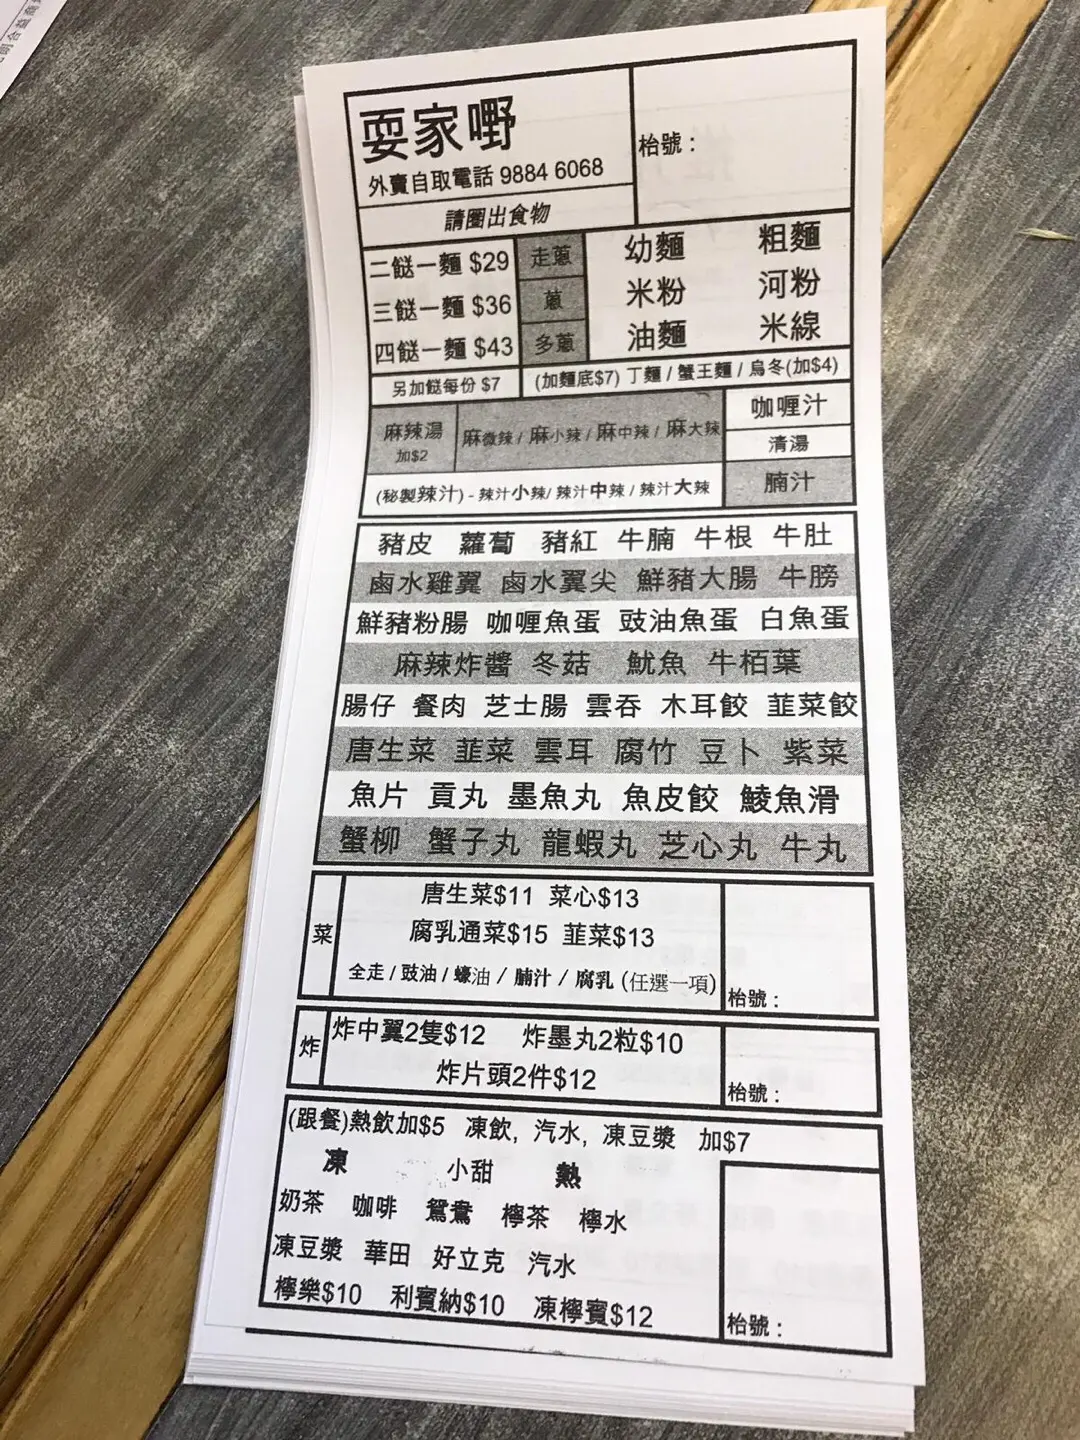 耍家嘢
外賣自取電話 9884 6068
枱號：
請圈出食物
二餸一麵 $29
三餸一麵 $36
四餸一麵 $43
走蔥
蔥
多蔥
幼麵 粗麵
米粉 河粉
油麵 米線
另加餸每份 $7
(加麵底$7) 丁麵 / 蟹王麵 / 烏冬(加$4)
麻辣湯
加$2
麻微辣 / 麻小辣 / 麻中辣 / 麻大辣
咖喱汁
清湯
腩汁
(秘製辣汁) - 辣汁小辣/ 辣汁中辣 / 辣汁大辣
豬皮 蘿蔔 豬紅 牛腩 牛根 牛肚
鹵水雞翼 鹵水翼尖 鮮豬大腸 牛膀
鮮豬粉腸 咖喱魚蛋 豉油魚蛋 白魚蛋
麻辣炸醬 冬菇 魷魚 牛栢葉
腸仔 餐肉 芝士腸 雲吞 木耳餃 韮菜餃
唐生菜 韮菜 雲耳 腐竹 豆卜 紫菜
魚片 貢丸 墨魚丸 魚皮餃 鯪魚滑
蟹柳 蟹子丸 龍蝦丸 芝心丸 牛丸
菜
唐生菜$11 菜心$13
腐乳通菜$15 韮菜$13
全走 / 豉油 / 蠔油 / 腩汁 / 腐乳 (任選一項)
枱號：
炸
炸中翼2隻$12 炸墨丸2粒$10
炸片頭2件$12
枱號：
(跟餐)熱飲加$5 凍飲, 汽水, 凍豆漿 加$7
凍 小甜 熱
奶茶 咖啡 鴛鴦 檸茶 檸水
凍豆漿 華田 好立克 汽水
檸樂$10 利賓納$10 凍檸賓$12
枱號：